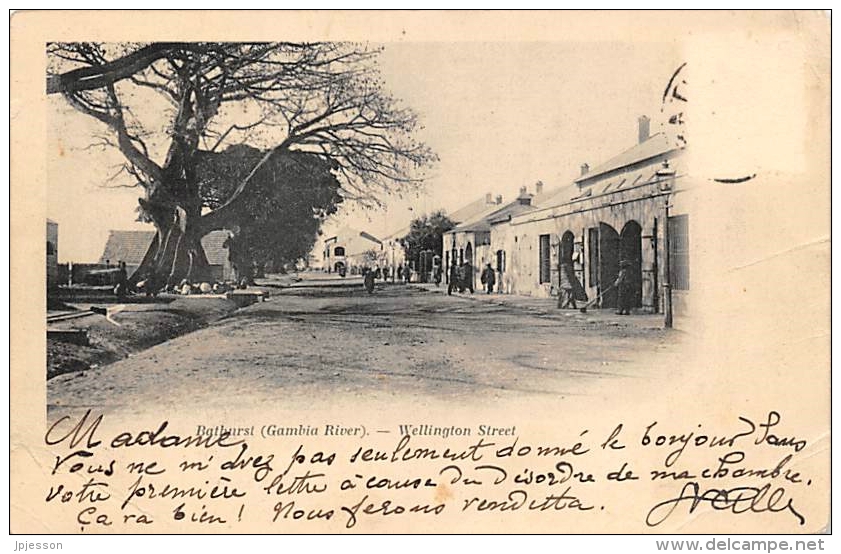 Bathurst (Gambia River). — Wellington Street
Madame,
Vous ne m'avez pas seulement donné le bonjour dans
votre première lettre à cause du désordre de ma chambre.
Ça va bien ! Nous ferons venditta.
jpjesson
www.delcampe.net